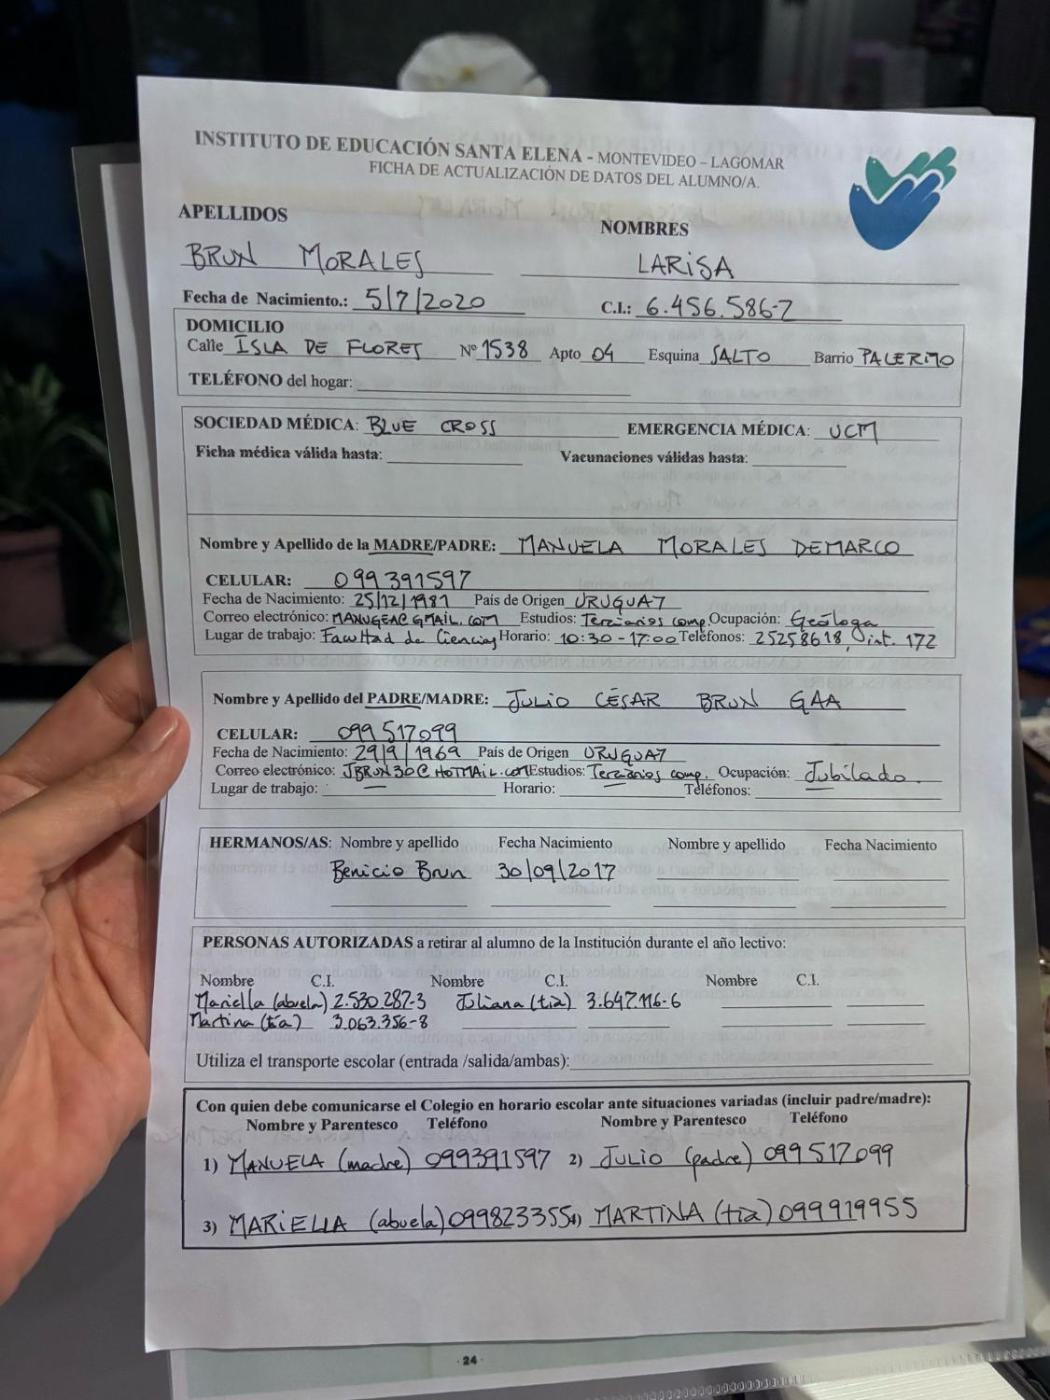 INSTITUTO DE EDUCACIÓN SANTA ELENA - MONTEVIDEO – LAGOMAR
FICHA DE ACTUALIZACIÓN DE DATOS DEL ALUMNO/A.
APELLIDOS NOMBRES
BRUN MORALES LARISA
Fecha de Nacimiento.: 5/7/2020 C.I.: 6.456.586-7
DOMICILIO
Calle ISLA DE FLORES Nº 1538 Apto 04 Esquina SALTO Barrio PALERMO
TELÉFONO del hogar:
SOCIEDAD MÉDICA: BLUE CROSS EMERGENCIA MÉDICA: UCM
Ficha médica válida hasta: Vacunaciones válidas hasta:
Nombre y Apellido de la MADRE/PADRE: MANUELA MORALES DEMARCO
CELULAR: 099391597
Fecha de Nacimiento: 25/12/1981 País de Origen URUGUAY
Correo electrónico: MANUGEA@GMAIL.COM Estudios: Terciarios comp Ocupación: Geóloga
Lugar de trabajo: Facultad de Ciencias Horario: 10:30-17:00 Teléfonos: 25258618, int. 172
Nombre y Apellido del PADRE/MADRE: JULIO CÉSAR BRUN GAA
CELULAR: 099517099
Fecha de Nacimiento: 29/9/1969 País de Origen URUGUAY
Correo electrónico: JBRUN30@HOTMAIL.COM Estudios: Terciarios comp. Ocupación: Jubilado.
Lugar de trabajo: Horario: Teléfonos:
HERMANOS/AS: Nombre y apellido Fecha Nacimiento Nombre y apellido Fecha Nacimiento
Benicio Brun 30/09/2017
PERSONAS AUTORIZADAS a retirar al alumno de la Institución durante el año lectivo:
Nombre C.I. Nombre C.I. Nombre C.I.
Mariella (abuela) 2.530.287-3 Juliana (tía) 3.647.116-6
Martina (tía) 3.063.356-8
Utiliza el transporte escolar (entrada /salida/ambas):
Con quien debe comunicarse el Colegio en horario escolar ante situaciones variadas (incluir padre/madre):
Nombre y Parentesco Teléfono Nombre y Parentesco Teléfono
1) MANUELA (madre) 099391597 2) JULIO (padre) 099517099
3) MARIELLA (abuela) 099823355 4) MARTINA (tía) 099919955
· 24 ·